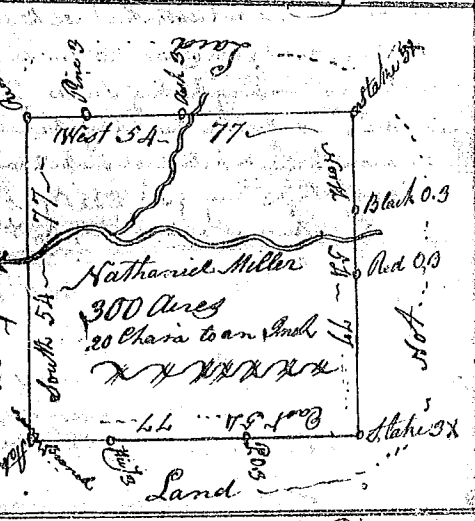 Land
Pine 3
Ash 3
Stake 3X
West 54 77
North 54 77
Black O.3
Red O.3
South 54 77
Nathaniel Miller
300 Acres
20 Chain to an Inch
East 54 77
Stake 3X
P.O 3
Land